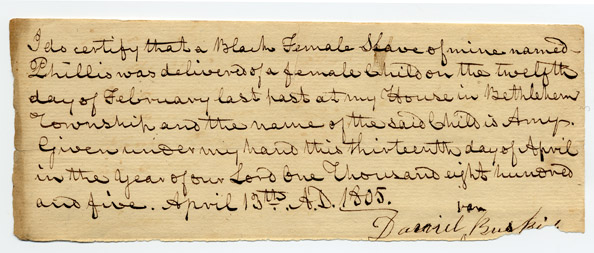 I do certify that a Black Female Slave of mine named
Phillis was delivered of a female Child on the twelfth
day of February last past at my House in Bethlehem
Township and the name of the said Child is Amy.
Given under my hand this thirteenth day of April
in the Year of our Lord One Thousand eight hundred
and five. April 13th. A.D. 1805.
van
Daniel Buskirk